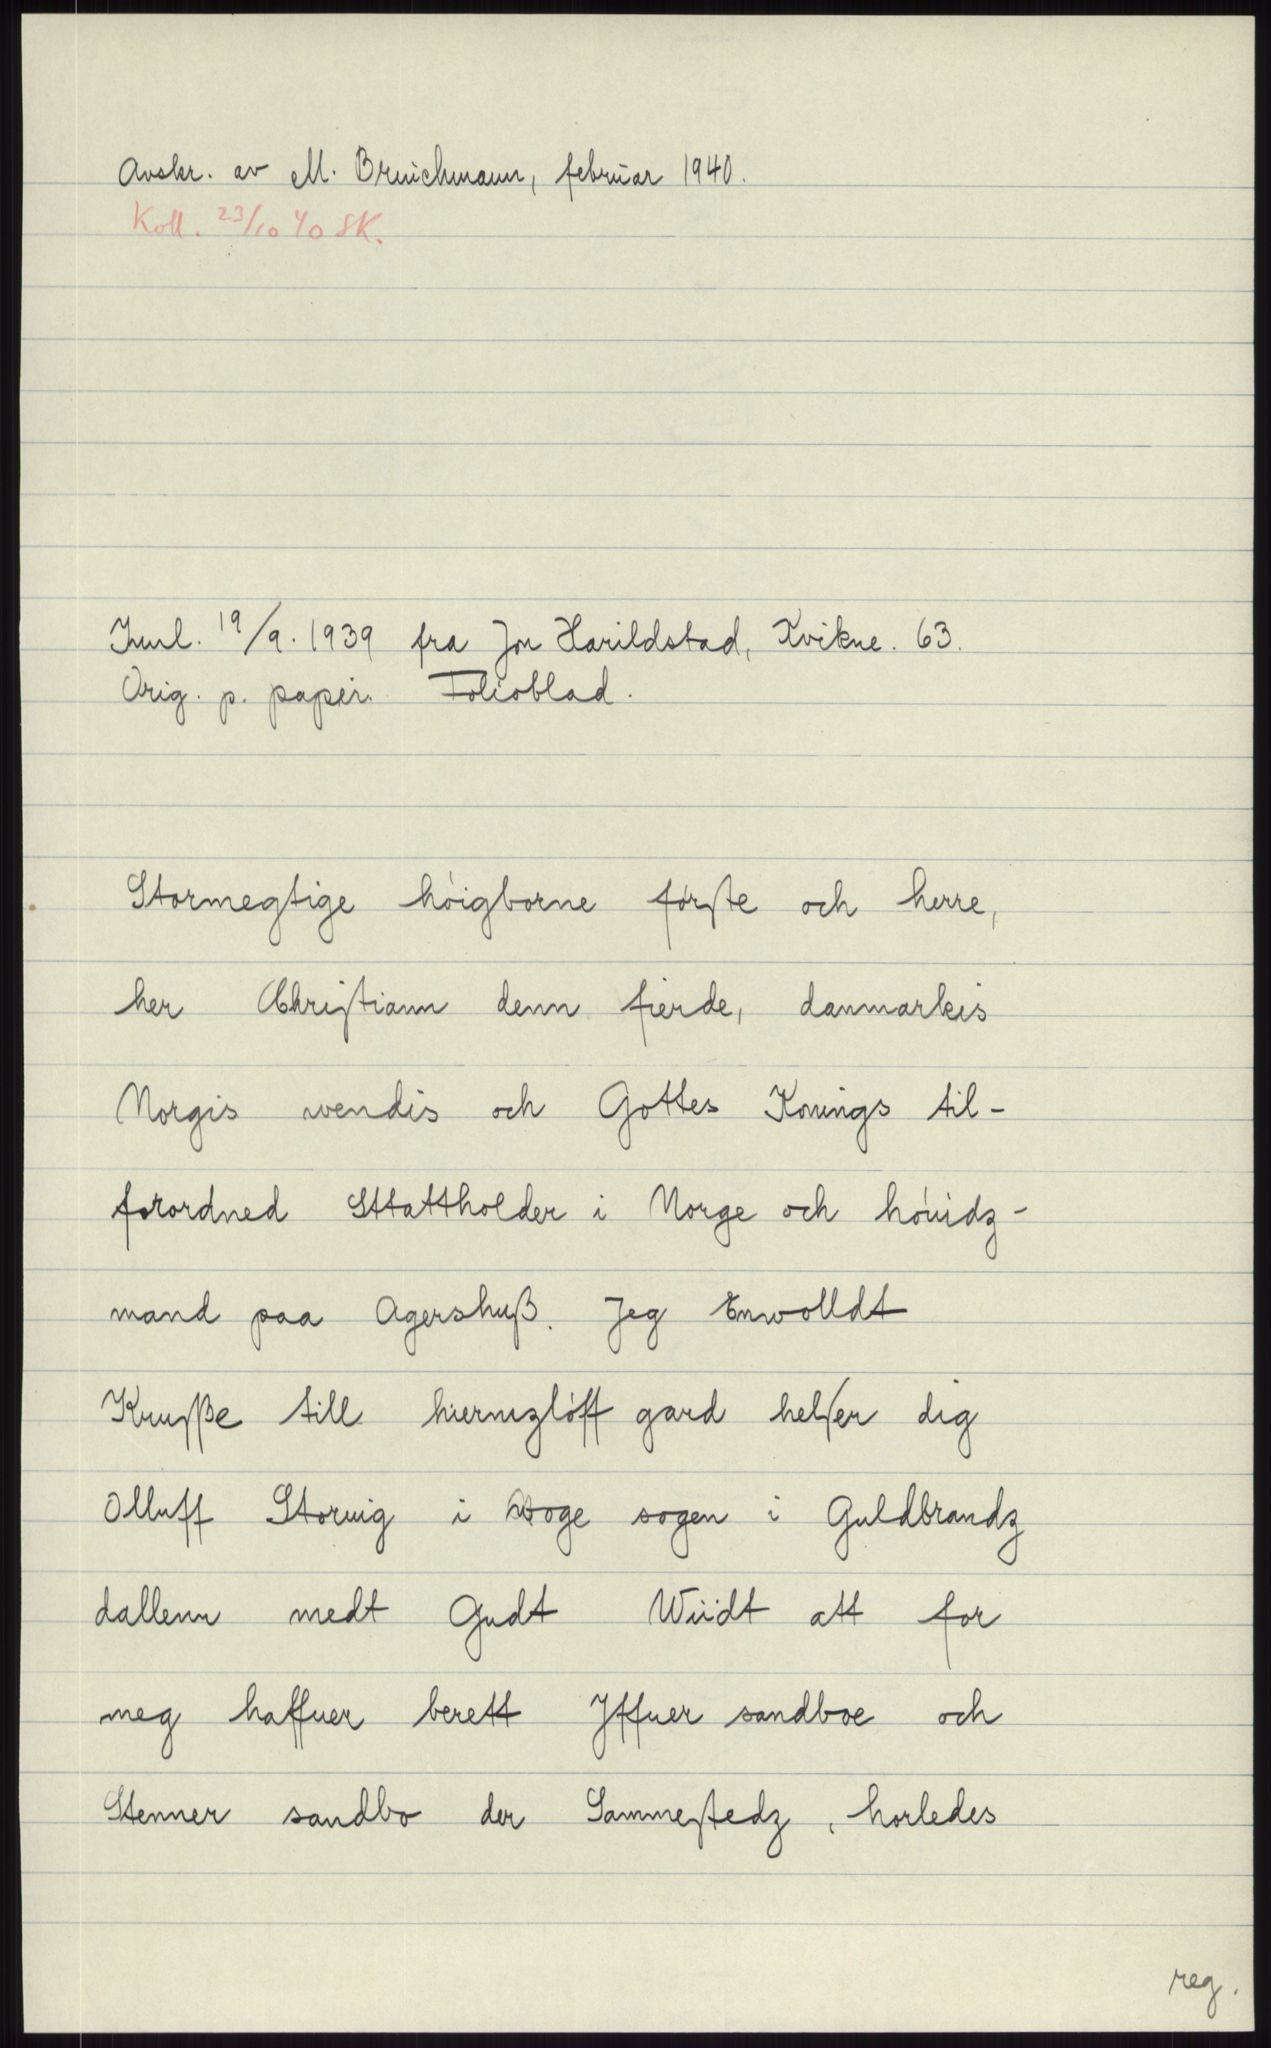 Avskr. av M. Bruichmann, februar 1940.
Koll. 23/10 40 SK.
Innl. 19/9. 1939 fra Jon Harildstad, Kvikne. 63.
Orig. p. papir. Folioblad.
Stormegtige höigborne førſte och herre,
her Chriſtiann denn fierde, danmarkis
Norgis wendis och Gottes Konings til-
forordned Sttattholder i Norge och höuidz-
mand paa Agershuß. Jeg Enwolldt
Kruſße till hiermzlöff gard helſer dig
Olluff Storuig i Woge sogen i Guldbrandz
dallenn medt Gudt Wiidt att for
meg haffuer berett Yffuer sandboe och
Stenner sandbo der Sammeſtedz, horledes
reg.